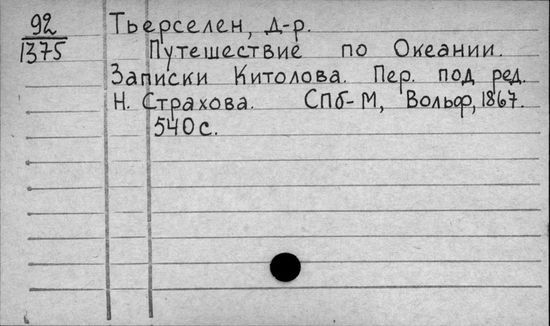 92 Тьерселен, д-р.
1375 Путешествие по Океании.
Записки Китолова. Пер. под ред.
Н. Страхова. СПб-М, Вольф, 1867.
540 с.